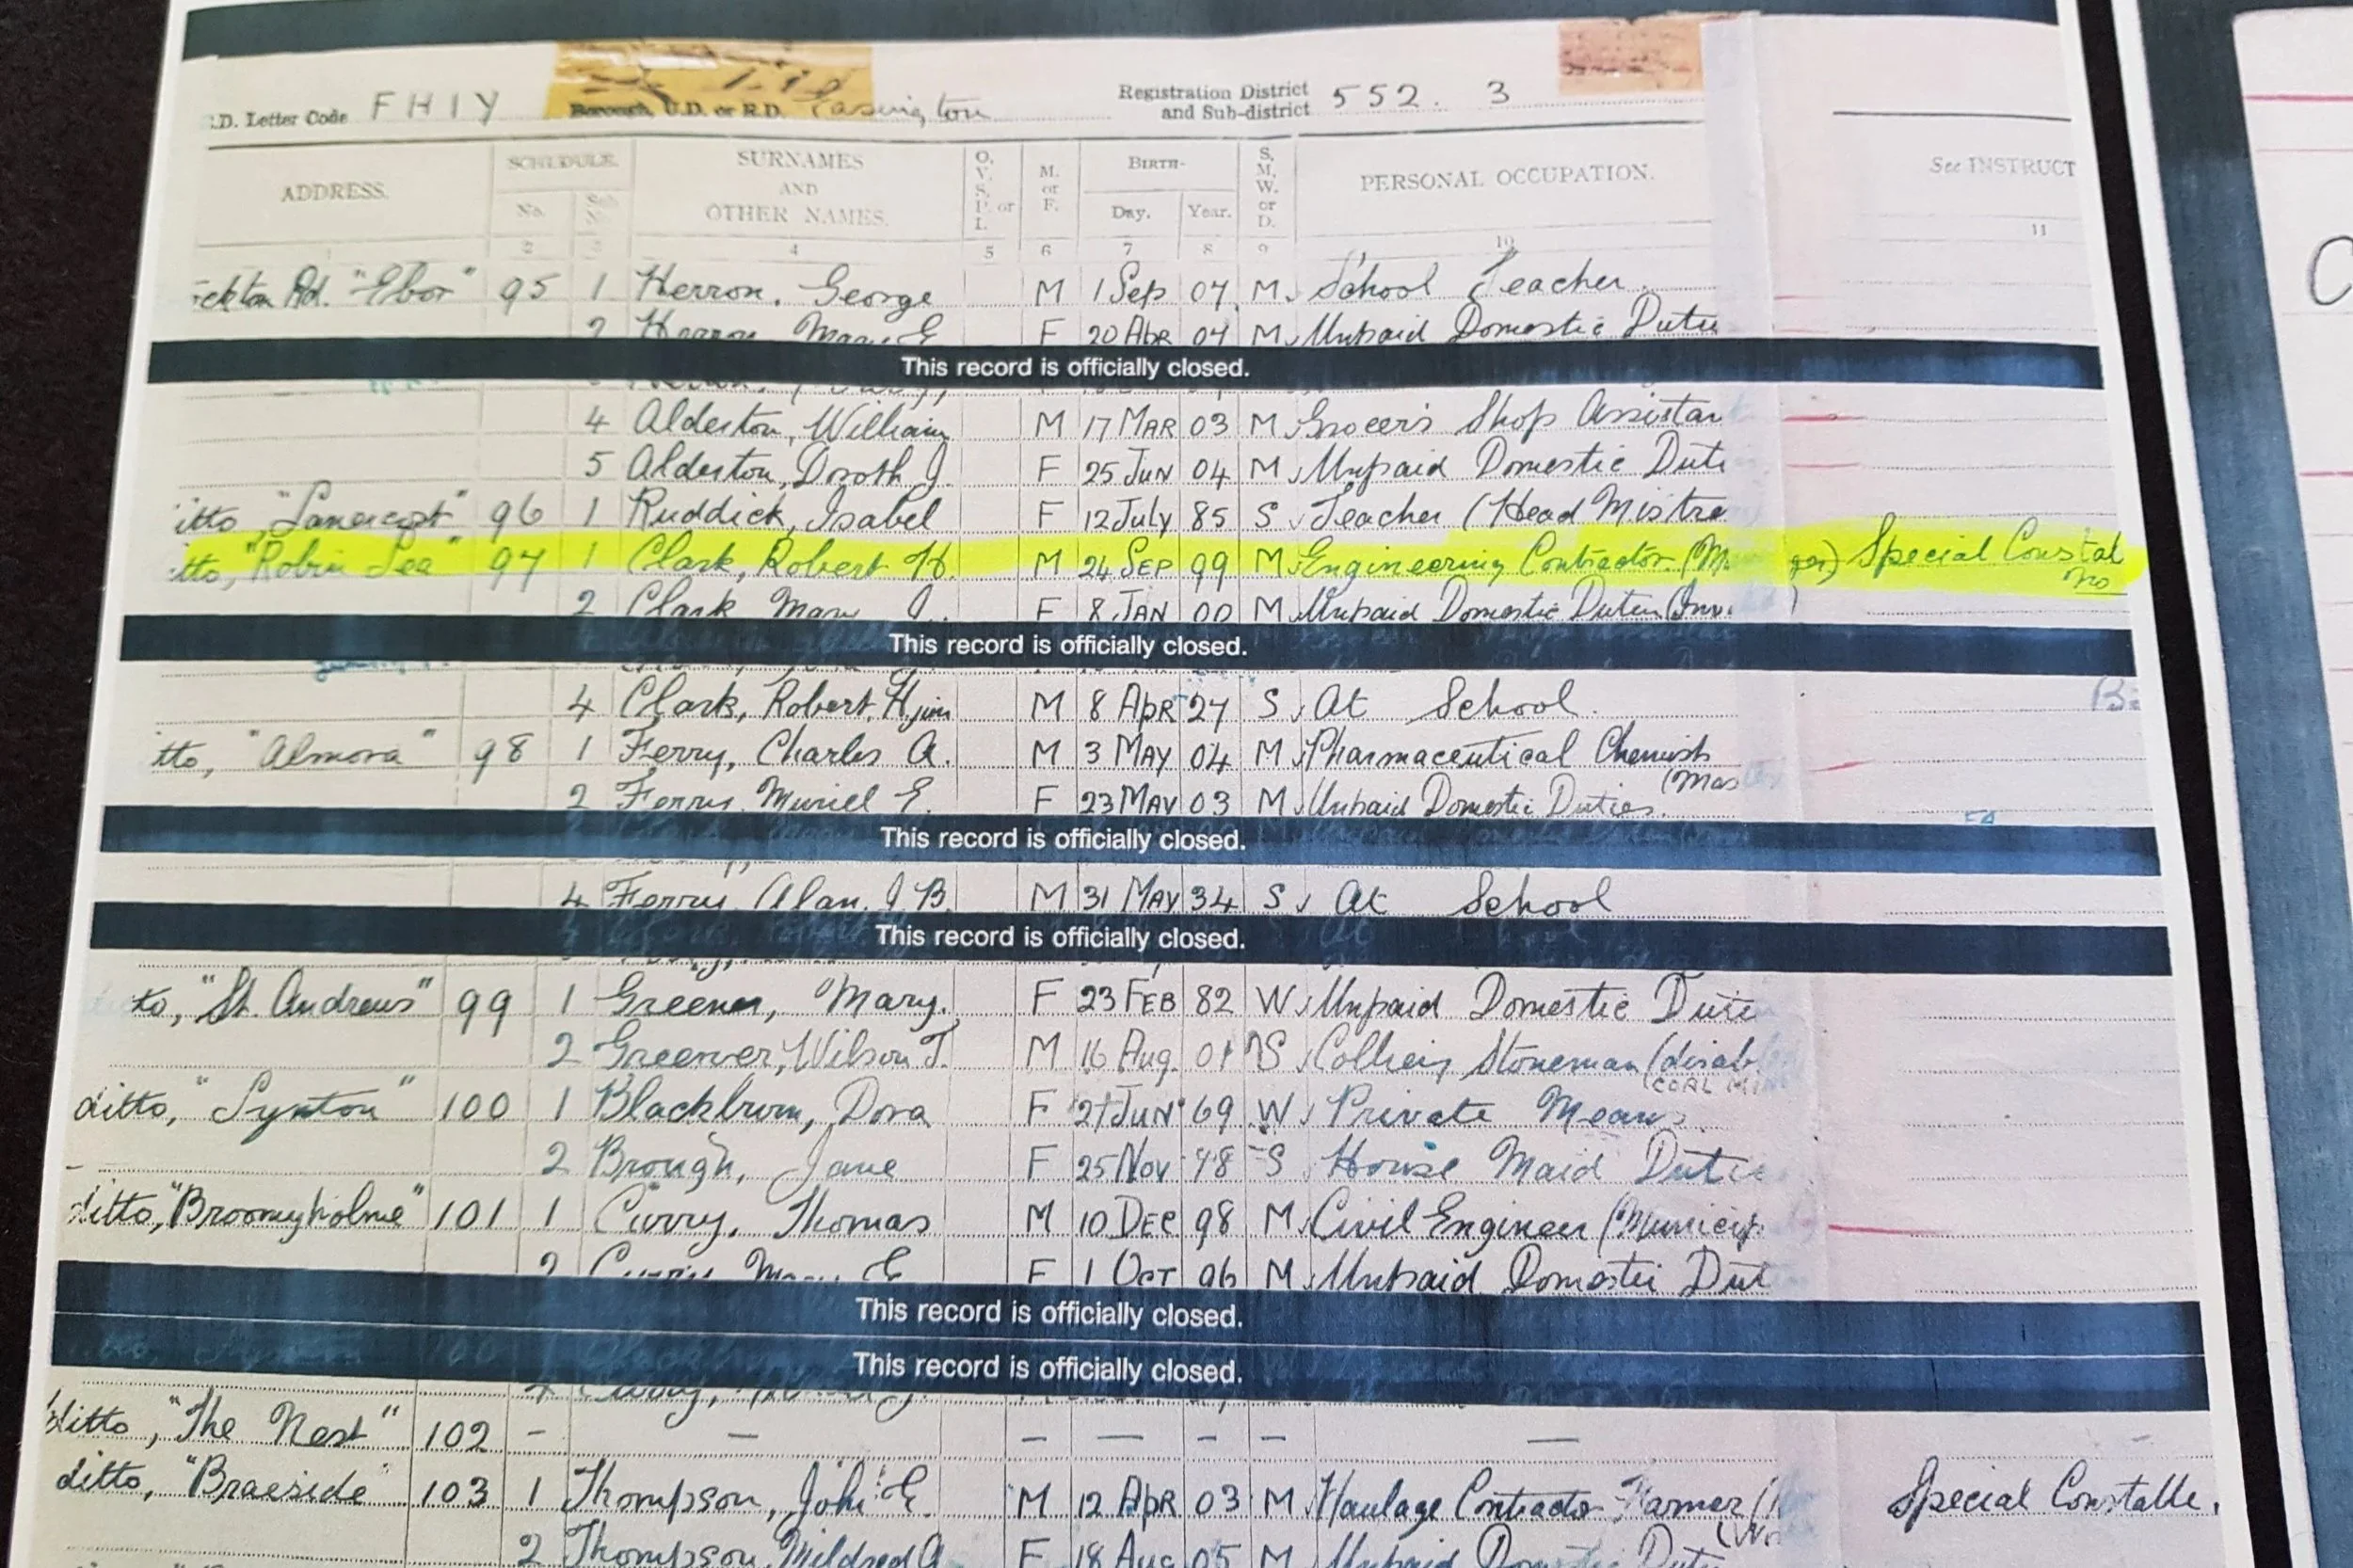 .D. Letter Code FHIY Borough, U.D. or R.D. Easington Registration District and Sub-district 552. 3
ADDRESS. SCHEDULE. No. SURNAMES AND OTHER NAMES. O. V. S. P. or I. M. or F. BIRTH- Day. Year. S, M, W. or D. PERSONAL OCCUPATION. See INSTRUCT
1 2 3 4 5 6 7 8 9 10 11
ckton Rd. "Ebor" 95 1 Herron, George M 1 Sep 07 M School Teacher
2 Herron Mary E F 20 Apr 04 M Unpaid Domestic Dutie
This record is officially closed.
4 Alderton, William M 17 Mar 03 M Grocer's Shop Assistan
5 Alderton, Doroth J. F 25 Jun 04 M Unpaid Domestic Duti
itto "Lanercost" 96 1 Ruddick, Isabel F 12 July 85 S Teacher (Head Mistre
itto, "Robin Lea" 97 1 Clark, Robert H. M 24 Sep 99 M Engineering Contractor (M ger) Special Constab
No
2 Clark Mary J. F 8 Jan 00 M Unpaid Domestic Duties (Inv. )
This record is officially closed.
4 Clark, Robert H jun M 8 Apr 27 S At School
tto, "Almora" 98 1 Ferry, Charles A. M 3 May 04 M Pharmaceutical Chemist
(Mas
2 Ferry, Muriel E. F 23 May 03 M Unpaid Domestic Duties.
This record is officially closed.
4 Ferry Alan J B. M 31 May 34 S At School
This record is officially closed.
to, "St. Andrews" 99 1 Greener, Mary. F 23 Feb 82 W Unpaid Domestic Duti
2 Greener, Wilson T. M 16 Aug. 01 S Colliery Stoneman (disab
COAL MI
ditto, "Synton" 100 1 Blackburn, Dora F 27 Jun 69 W Private Means
2 Brough, Jane F 25 Nov 78 S House Maid Dutie
ditto, "Broomyholme" 101 1 Curry, Thomas M 10 Dec 98 M Civil Engineer (Municip.
2 Curry Mary E F 1 Oct 96 M Unpaid Domestic Dut
This record is officially closed.
This record is officially closed.
ditto, "The Nest" 102 - — — — — — —
ditto, "Braeside" 103 1 Thompson, John E. M 12 Apr 03 M Haulage Contractor Farmer ( Special Constable.
2 Thompson, Mildred A F 18 Aug 05 M Unpaid Domestic Duti